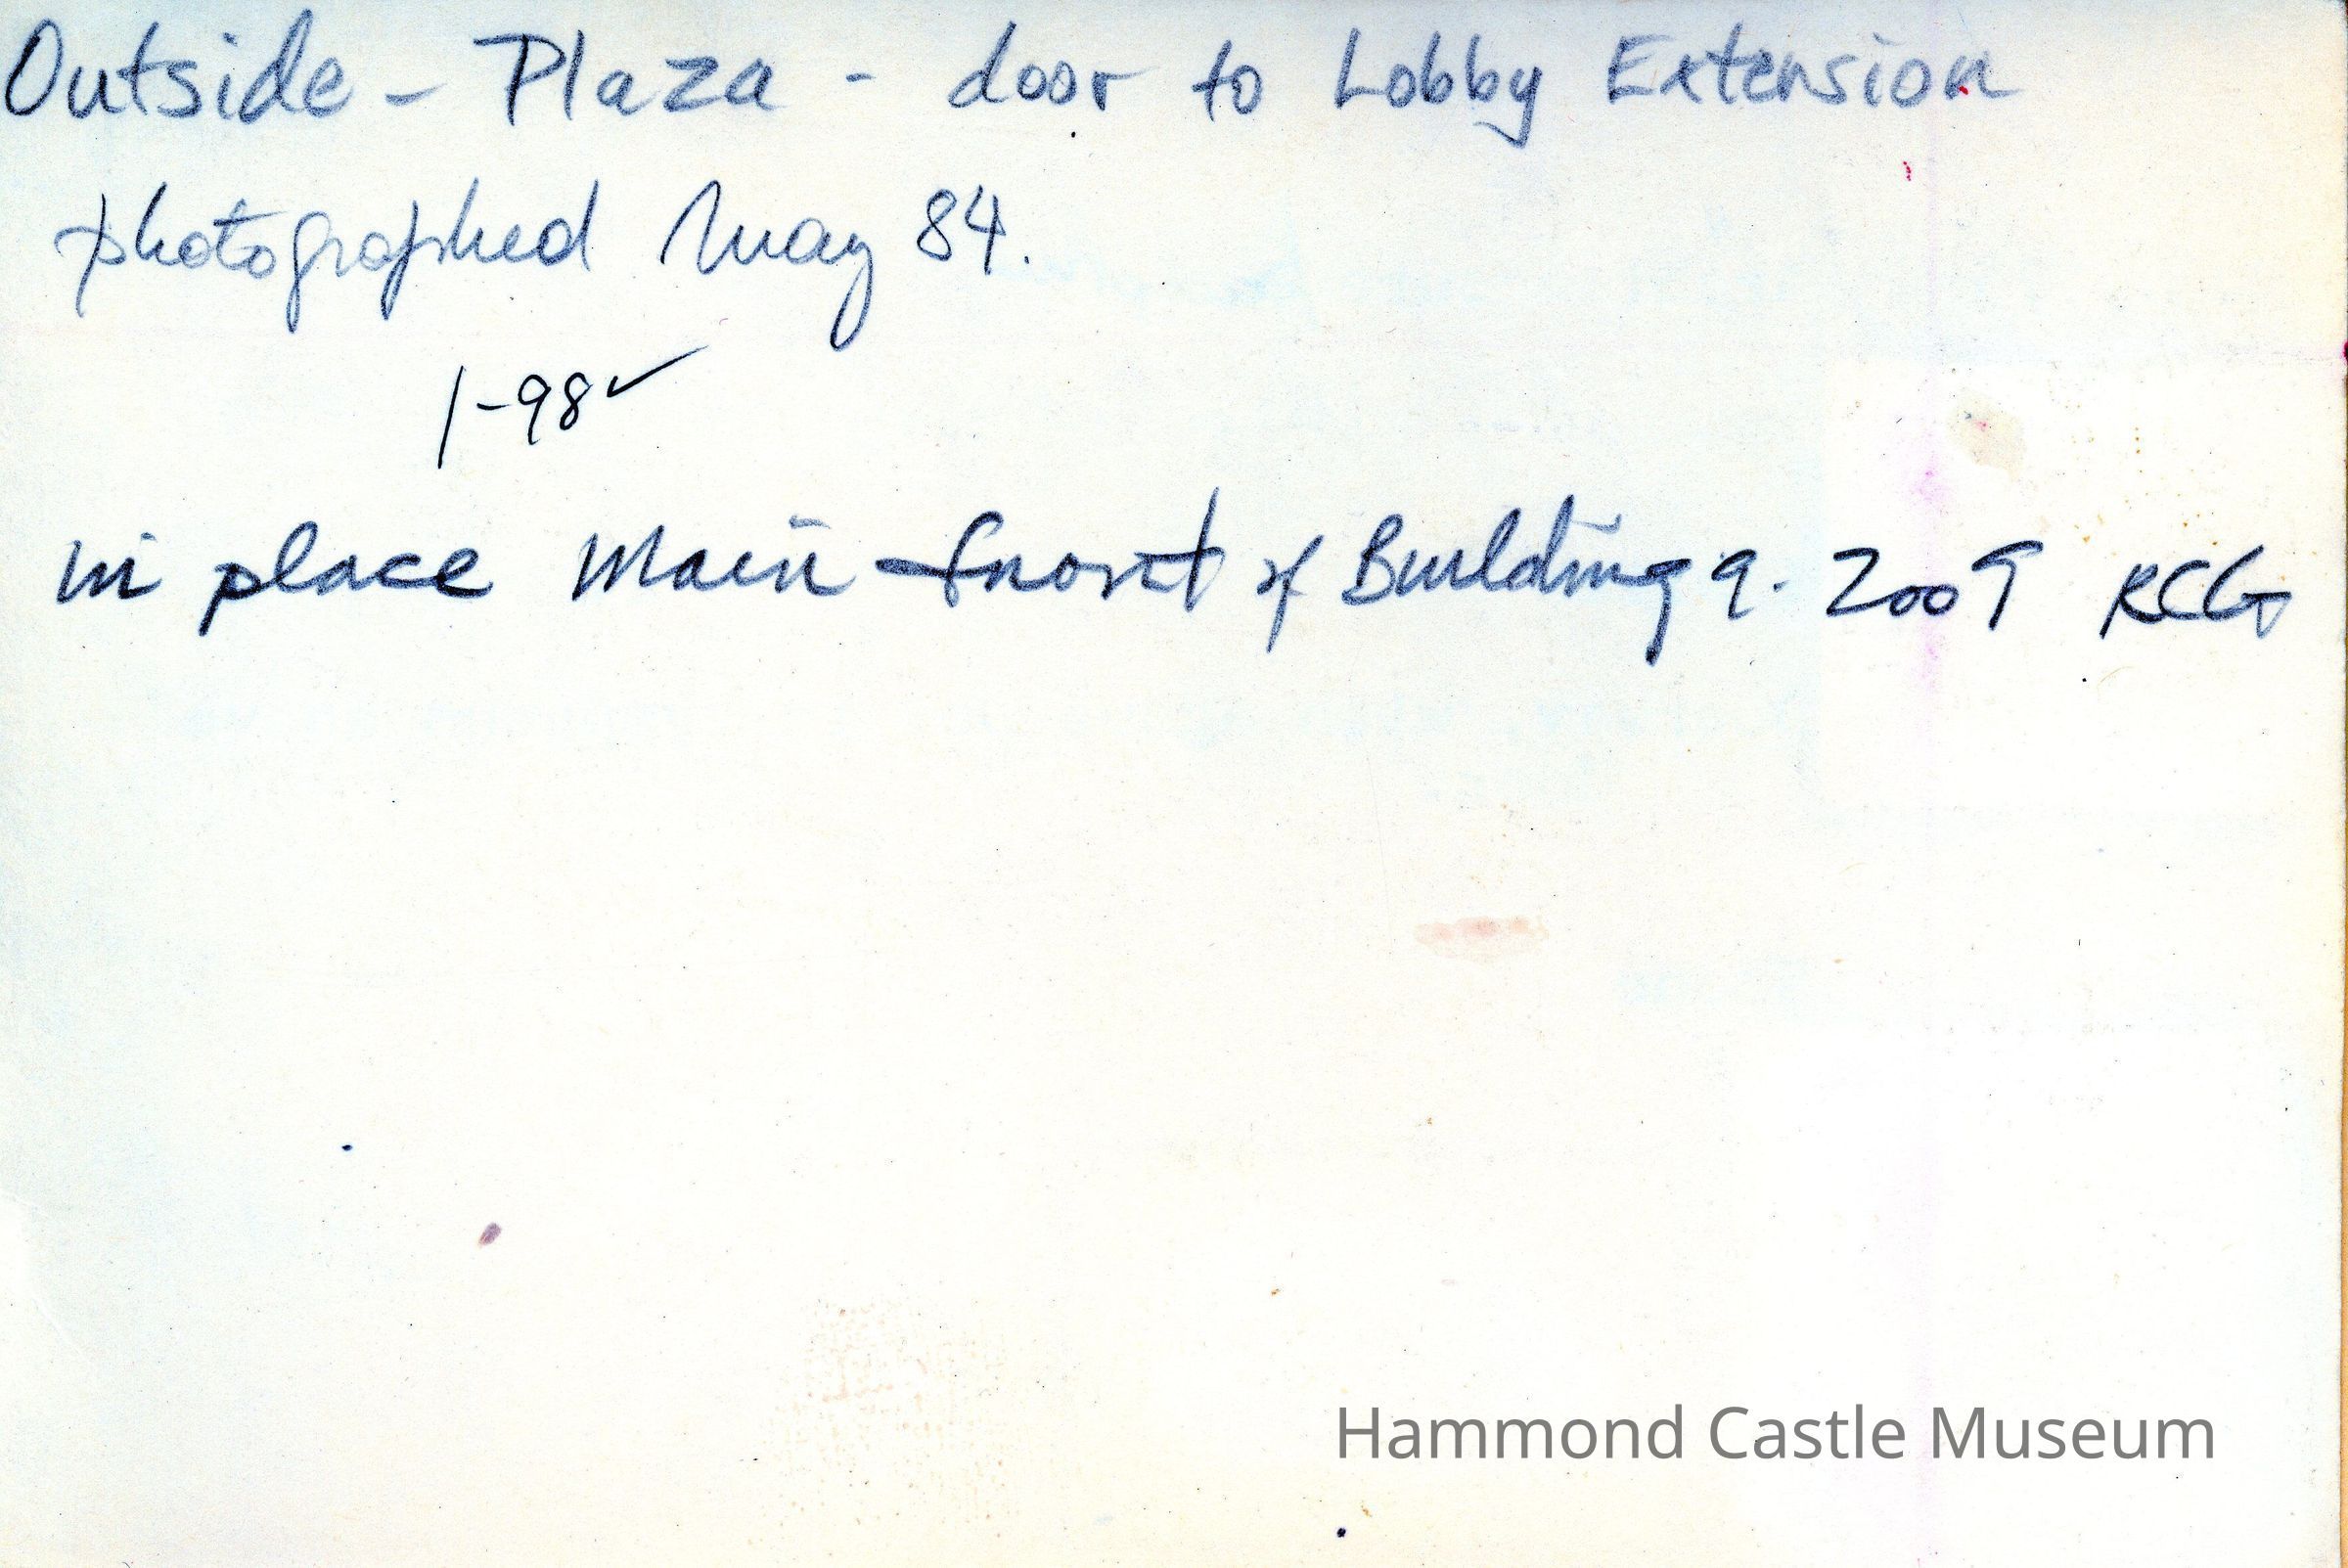 Outside - Plaza - door to Lobby Extension
photographed May 84.
1-98✓
in place Main front of Building 9. 2009 RCG
Hammond Castle Museum